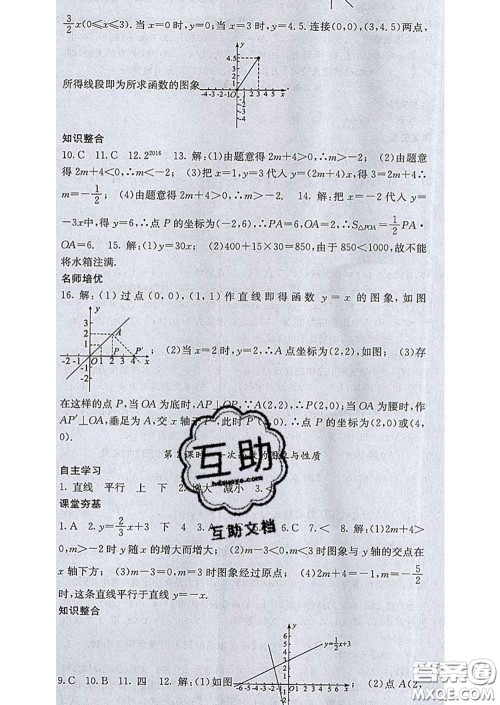 3/2x(0≤x≤3). 当x=0时,y=0;当x=3时,y=4.5. 连接(0,0),(3,4.5)两点,
所得线段即为所求函数的图象
知识整合
10. C 11. C 12. 2²⁰¹⁶ 13. 解:(1)由题意得2m+4>0,∴m>-2; (2)由题意
得2m+4<0,∴m<-2; (3)把x=1,y=3代入y=(2m+4)x,得3=2m+4∴
m=-1/2; (4)由题意得2m+4>0,∴m>-2. 14. 解:把x=-2代入y=
-3x中,得y=6,∴点P的坐标为(-2,6),∴PA=6,OA=2,∴S△POA=1/2PA·
OA=6. 15. 解:(1)y=30x; (2)400+15×30=850,由于850<1000,故不能
将水箱注满.
名师培优
16. 解:(1)过点(0,0),(1,1)作直线即得函数y=x的图象,如图
; (2)当x=2时,y=2,∴A点坐标为(2,2),如图; (3)存
在这样的点P,当OA为底时,AP⊥OP,∴P(2,0);当OA为腰时,作
AP′⊥OA,垂足为A,交x轴于P′,此时P′(4,0). ∴P点坐标为(2,0)或(4,
0).
第2课时 一次函数的图象与性质
自主学习
1. 直线 平行 上 下 2. 增大 减小 3.
课堂夯基
1. A 2. y=2/3x+3 下 4 3. A 6. C 7. < 8. 解:(1)2m+4>
0,m>-2时y随x的增大而增大; (2)m-3<0,m<3时图象与y轴的交点在
x轴下方; (3)m-3=0,m=3时图象经过原点; (4)2m+4=-1,m=-5/2
时,这条直线平行于直线y=-x.
知识整合
y=1/2x+3
9. C 10. B 11. 四 12. 解:(1)如图 ; (2)点A(2,
互助
hdzuoye.com
互助文档
答案圈
MXQE.COM